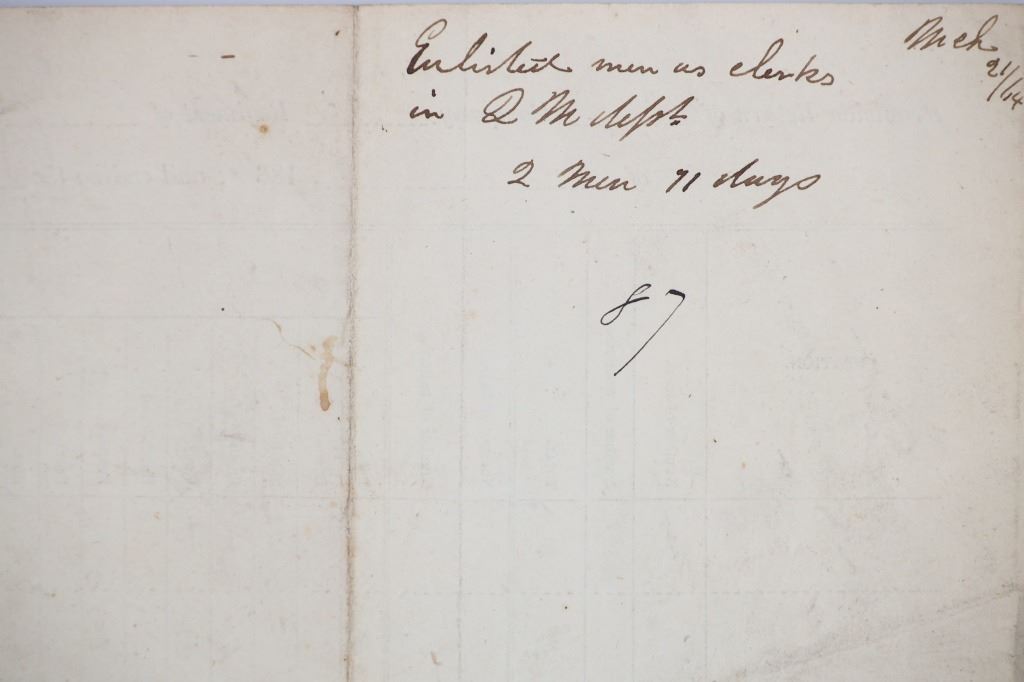 Mch
21/64
Enlisted men as clerks
in Q M dept
2 Men 71 days
87